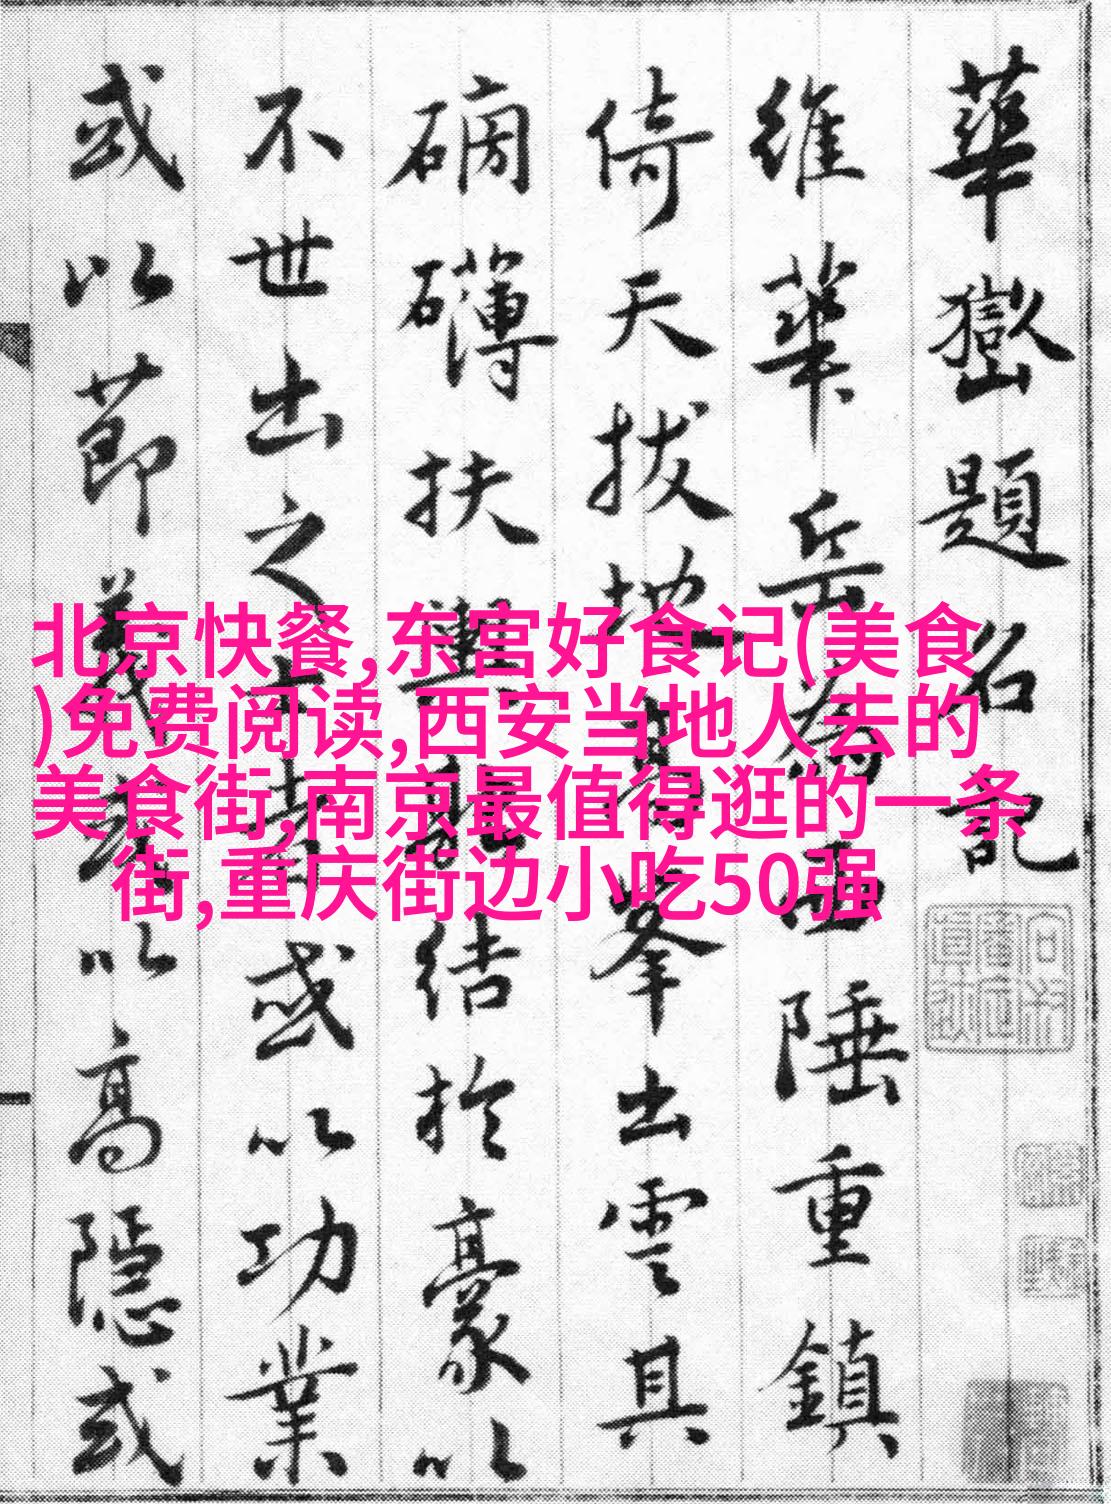 華嶽題名記
維華岳為西陲重鎮
倚天拔地峯出雲其
磅礴扶輿結於豪以
不世出之士或以功業
或以節義或以高隱或
北京快餐,东宫好食记(美食
)免费阅读,西安当地人去的
美食街,南京最值得逛的一条
街,重庆街边小吃50强